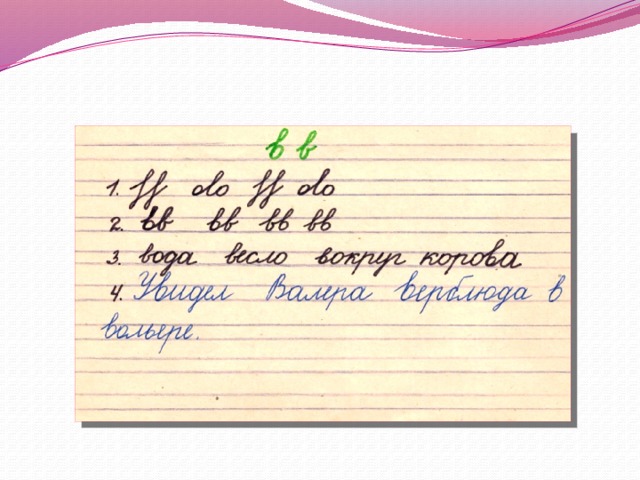 в в
1. ff do ff do
2. вв вв вв вв
3. вода весло вокруг корова
4. Увидел Валера верблюда в
вольере.